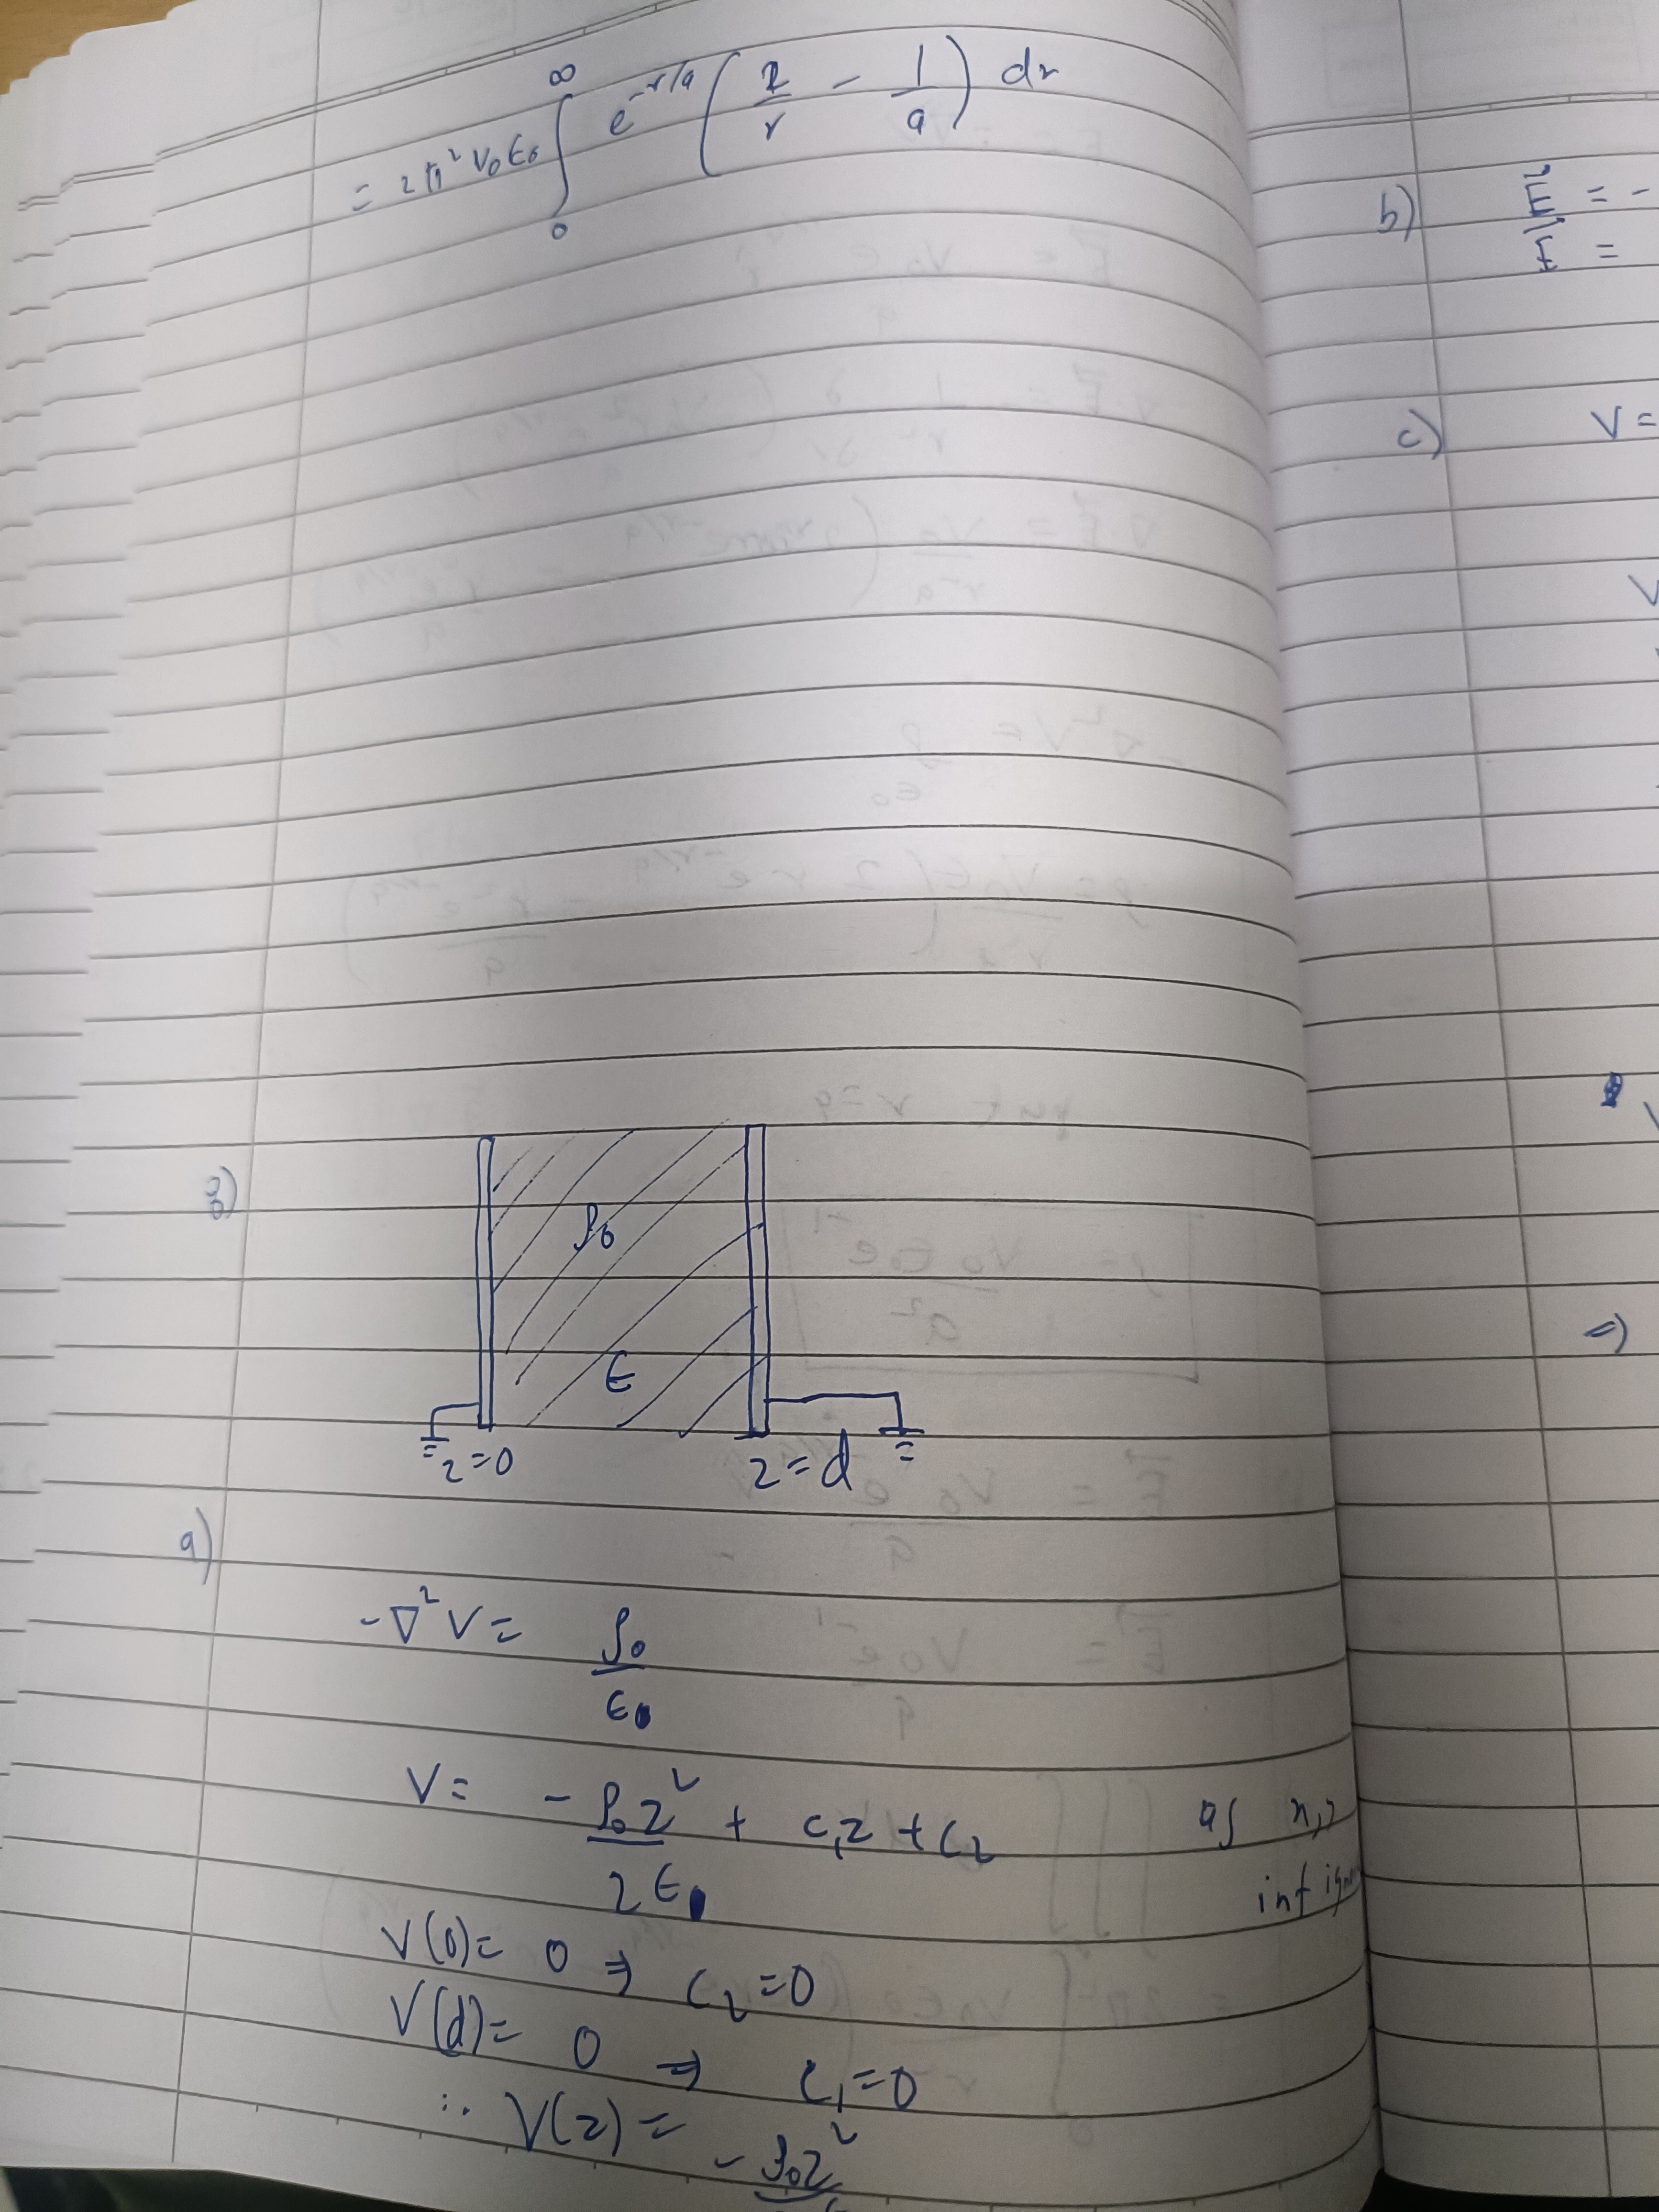 = 2π² V₀ ε₀ ∫₀^∞ e^(-r/a) (2/r - 1/a) dr
3)
ρ₀
ε
z=0 z=d
a)
-∇²V = ρ₀/ε
V = -ρ₀z²/2ε + c₁z + c₂ as
inf
V(0) = 0 ⇒ c₂=0
V(d) = 0 ⇒ c₁=0
∴ V(z) = -ρ₀z²
b) E⃗ = -
E⃗ =
c) V =
V
⇒)